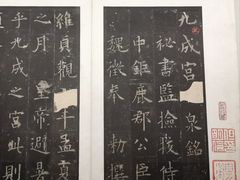 九成宮 泉銘
祕書監檢校侍
中鉅鹿郡公臣
魏徵奉 勅撰
維貞觀 年孟夏
之月皇帝避暑
乎九成之宮此則